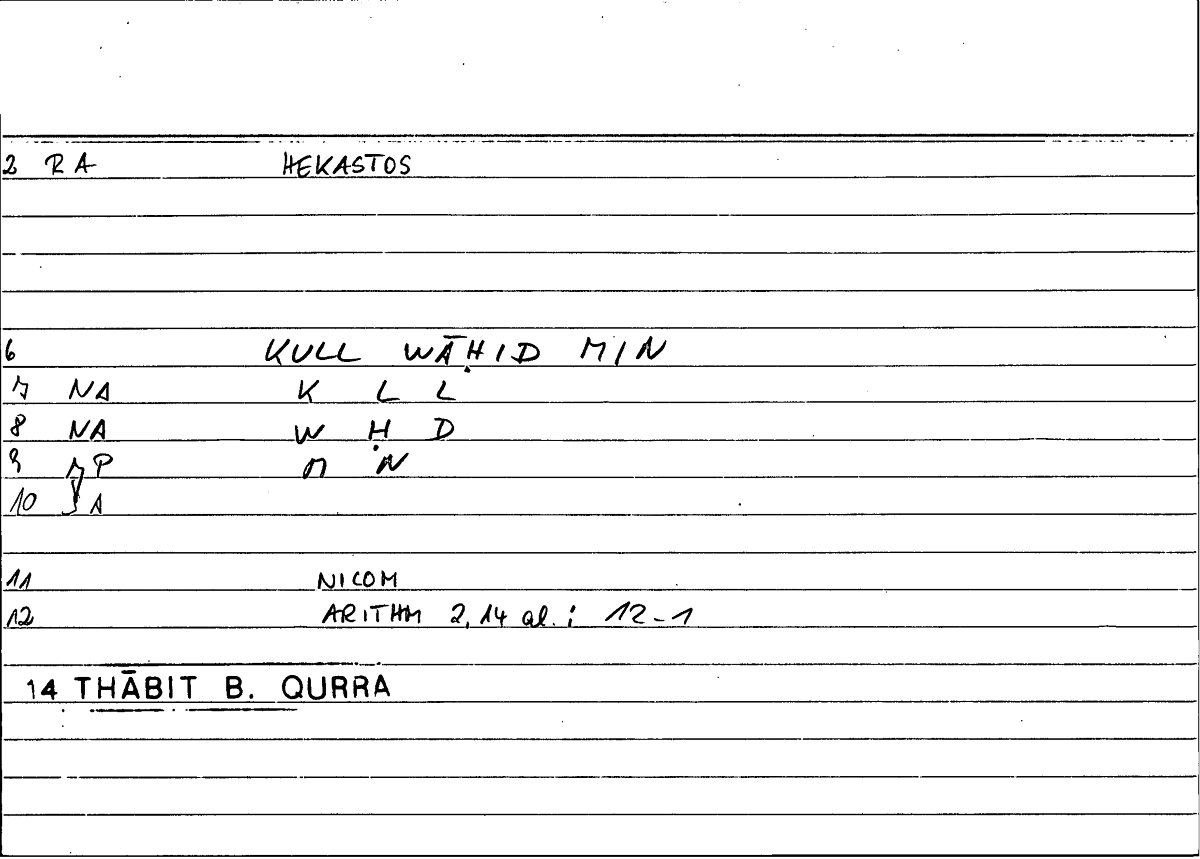 2 RA HEKASTOS
6 KULL WĀḤID MIN
7 NA K L L
8 NA W Ḥ D
9 P M N
10 A
11 NICOM
12 ARITHM 2,14 al. : 12-1
14 THĀBIT B. QURRA